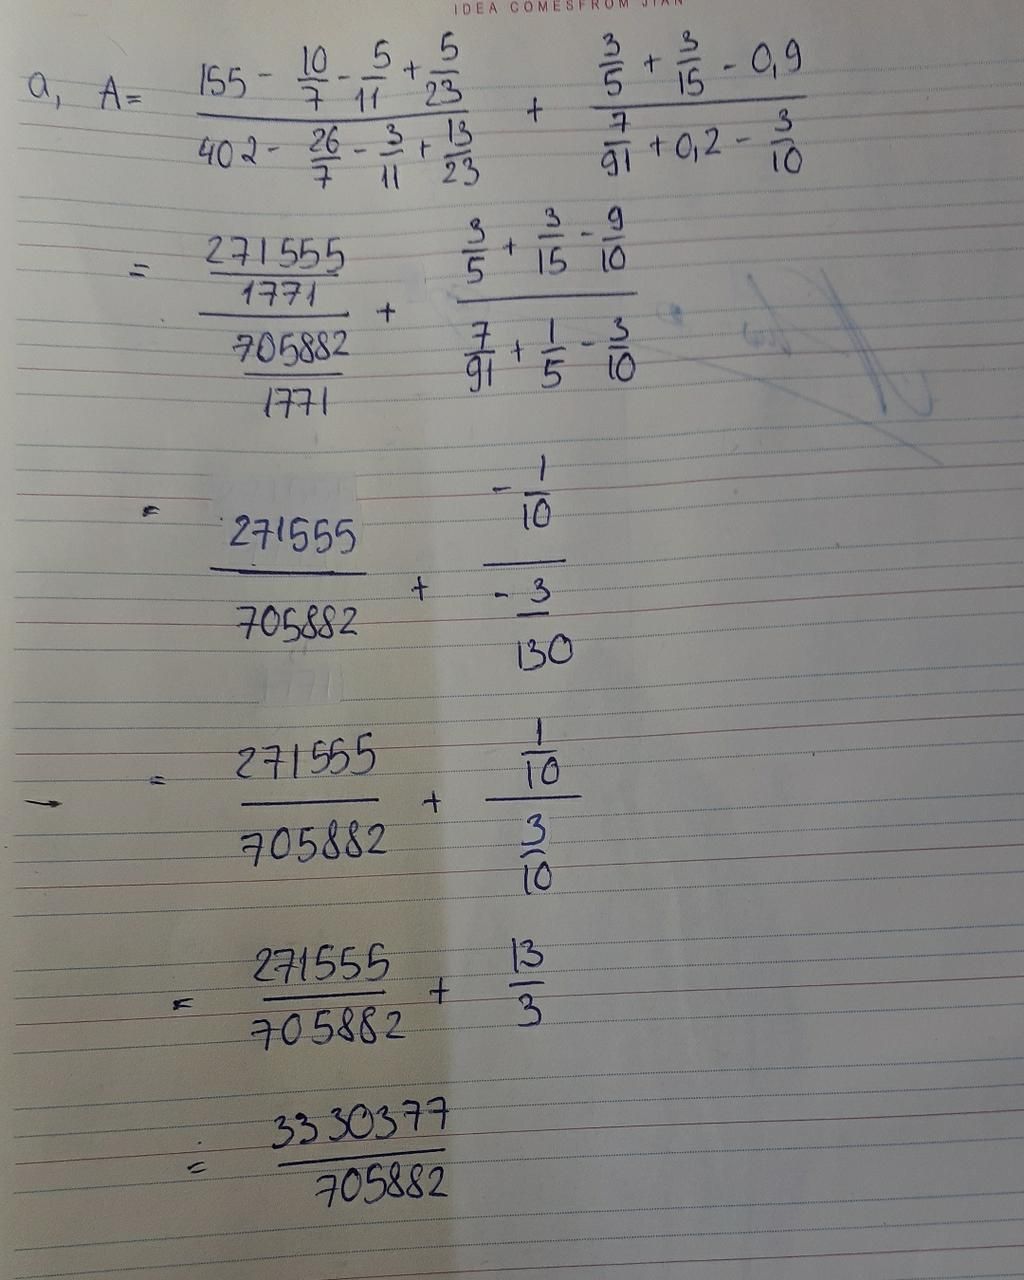 IDEA COMES FROM JIAN
a, A = (155 - 10/7 - 5/11 + 5/23)/(402 - 26/7 - 3/11 + 13/23) + (3/5 + 3/15 - 0,9)/(7/91 + 0,2 - 3/10)
= (271555/1771)/(705882/1771) + (3/5 + 3/15 - 9/10)/(7/91 + 1/5 - 3/10)
= 271555/705882 + (-1/10)/(-3/130)
→ = 271555/705882 + (1/10)/(3/10)
= 271555/705882 + 13/3
= 3330377/705882